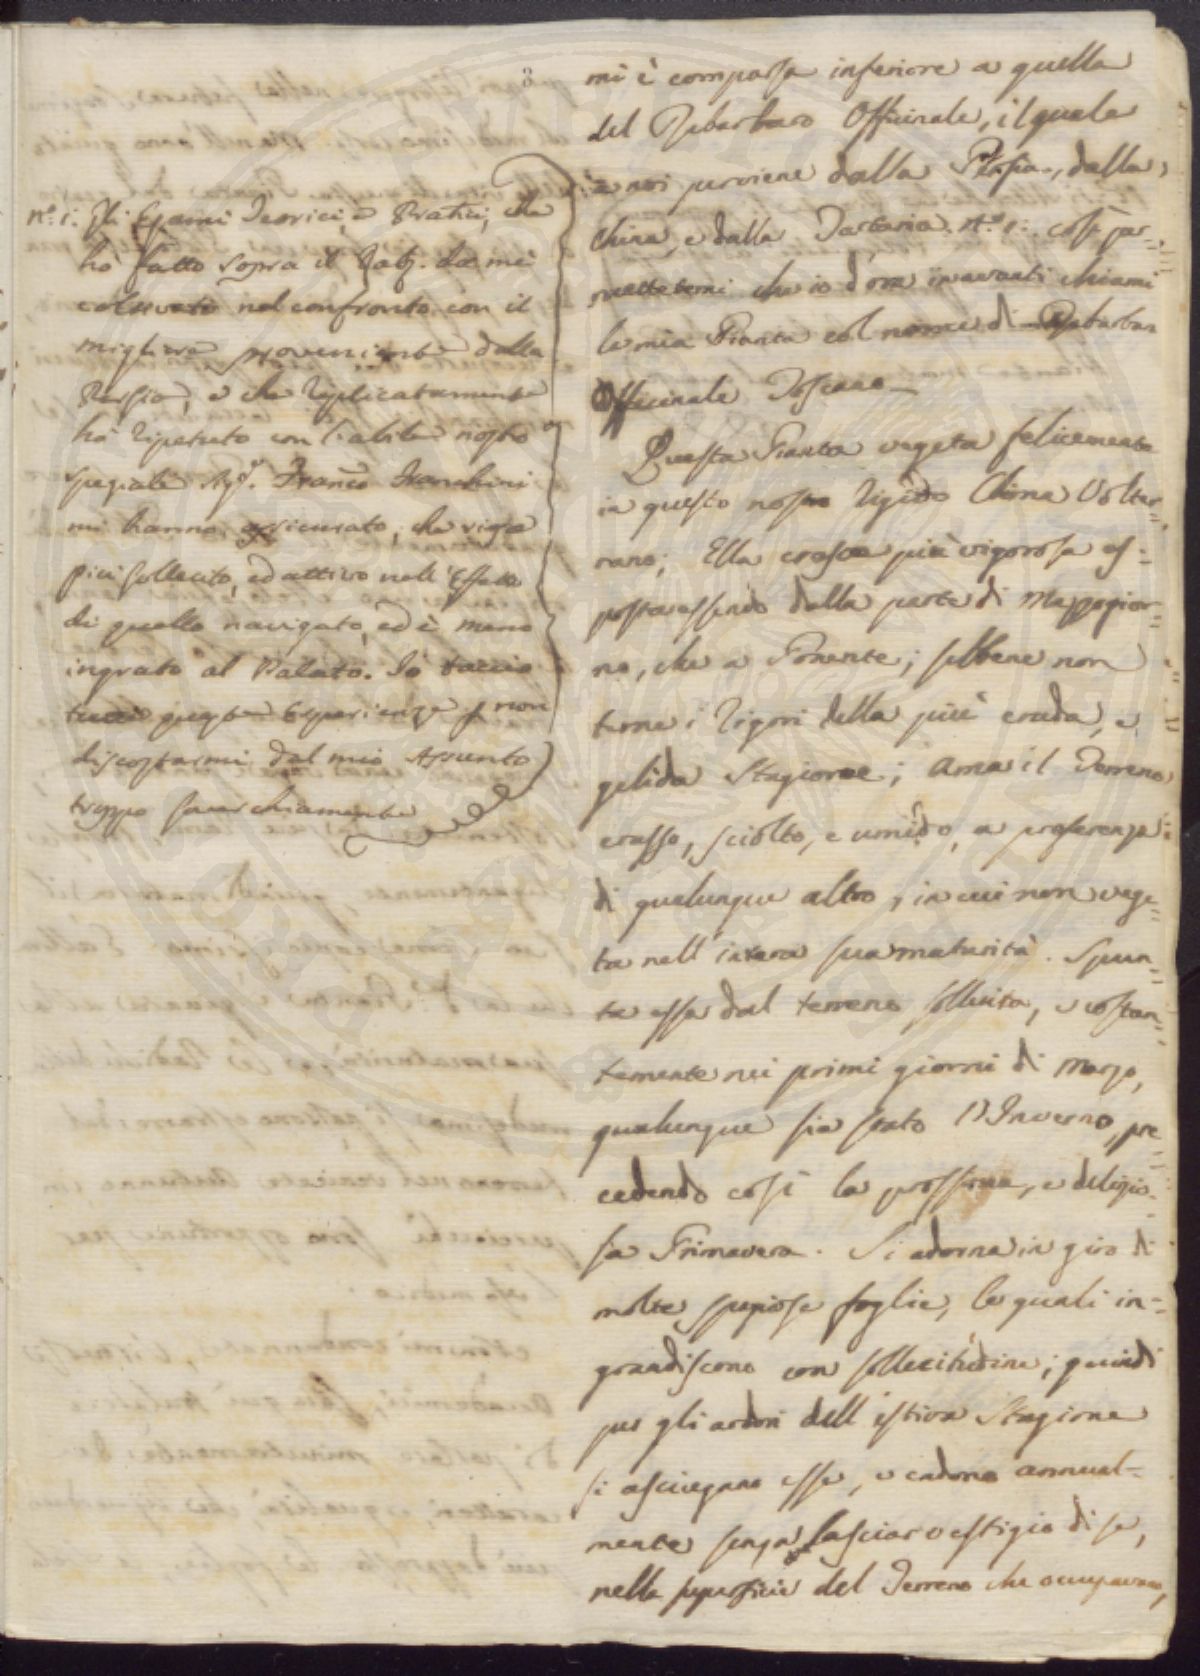 8
mi è comparsa inferiore a quella
del Rebarbaro Officinale, il quale
a noi perviene dalla Persia, dalla
China, e dalla Tartaria. N.º 1: così per=
mettetemi che io d'ora in avanti chiami
la mia Pianta col nome di Rebarbaro
Officinale Toscano
Questa Pianta vegeta felicemente
in questo nostro rigido Clima Volter=
rano; Ella cresce più vigorosa es=
posta essendo dalla parte di Mezzogior=
no, che a Ponente; sebbene non
teme i rigori della più cruda, e
gelida Stagione; Ama il Terreno
crasso, sciolto, e umido, a preferenza
di qualunque altro, in cui non vege=
ta nell'intera sua maturità. Spun=
ta essa dal terreno sollecita, e costan=
temente nei primi giorni di Marzo,
qualunque sia stato l'Inverno, pre=
cedendo così la prossima, e delizio=
sa Primavera. Si adorna in giro di
molte speziose foglie, le quali in=
grandiscono con sollecitudine; quindi
per gli ardori dell'estiva Stagione
si asciugano esse, e cadono annual=
mente senza lasciar vestigio di se,
nella superficie del Terreno che occupavano,
n.º 1. Gli Esami Teorici, e Pratici, che
hò fatto sopra il Rab. da me
coltivato nel confronto con il
migliore proveniente dalla
Persia, e che replicatamente
hò ripetuto con l'abile nostro
speziale Sig.r Franco Franchini
mi hanno assicurato, che
più sollecito, ed attivo nell'Effetto
di quello navigato, ed è meno
ingrato al Palato. Io taccio
tutte queste Esperienze p non
discostarmi dal mio Assunto
troppo soverchiamente